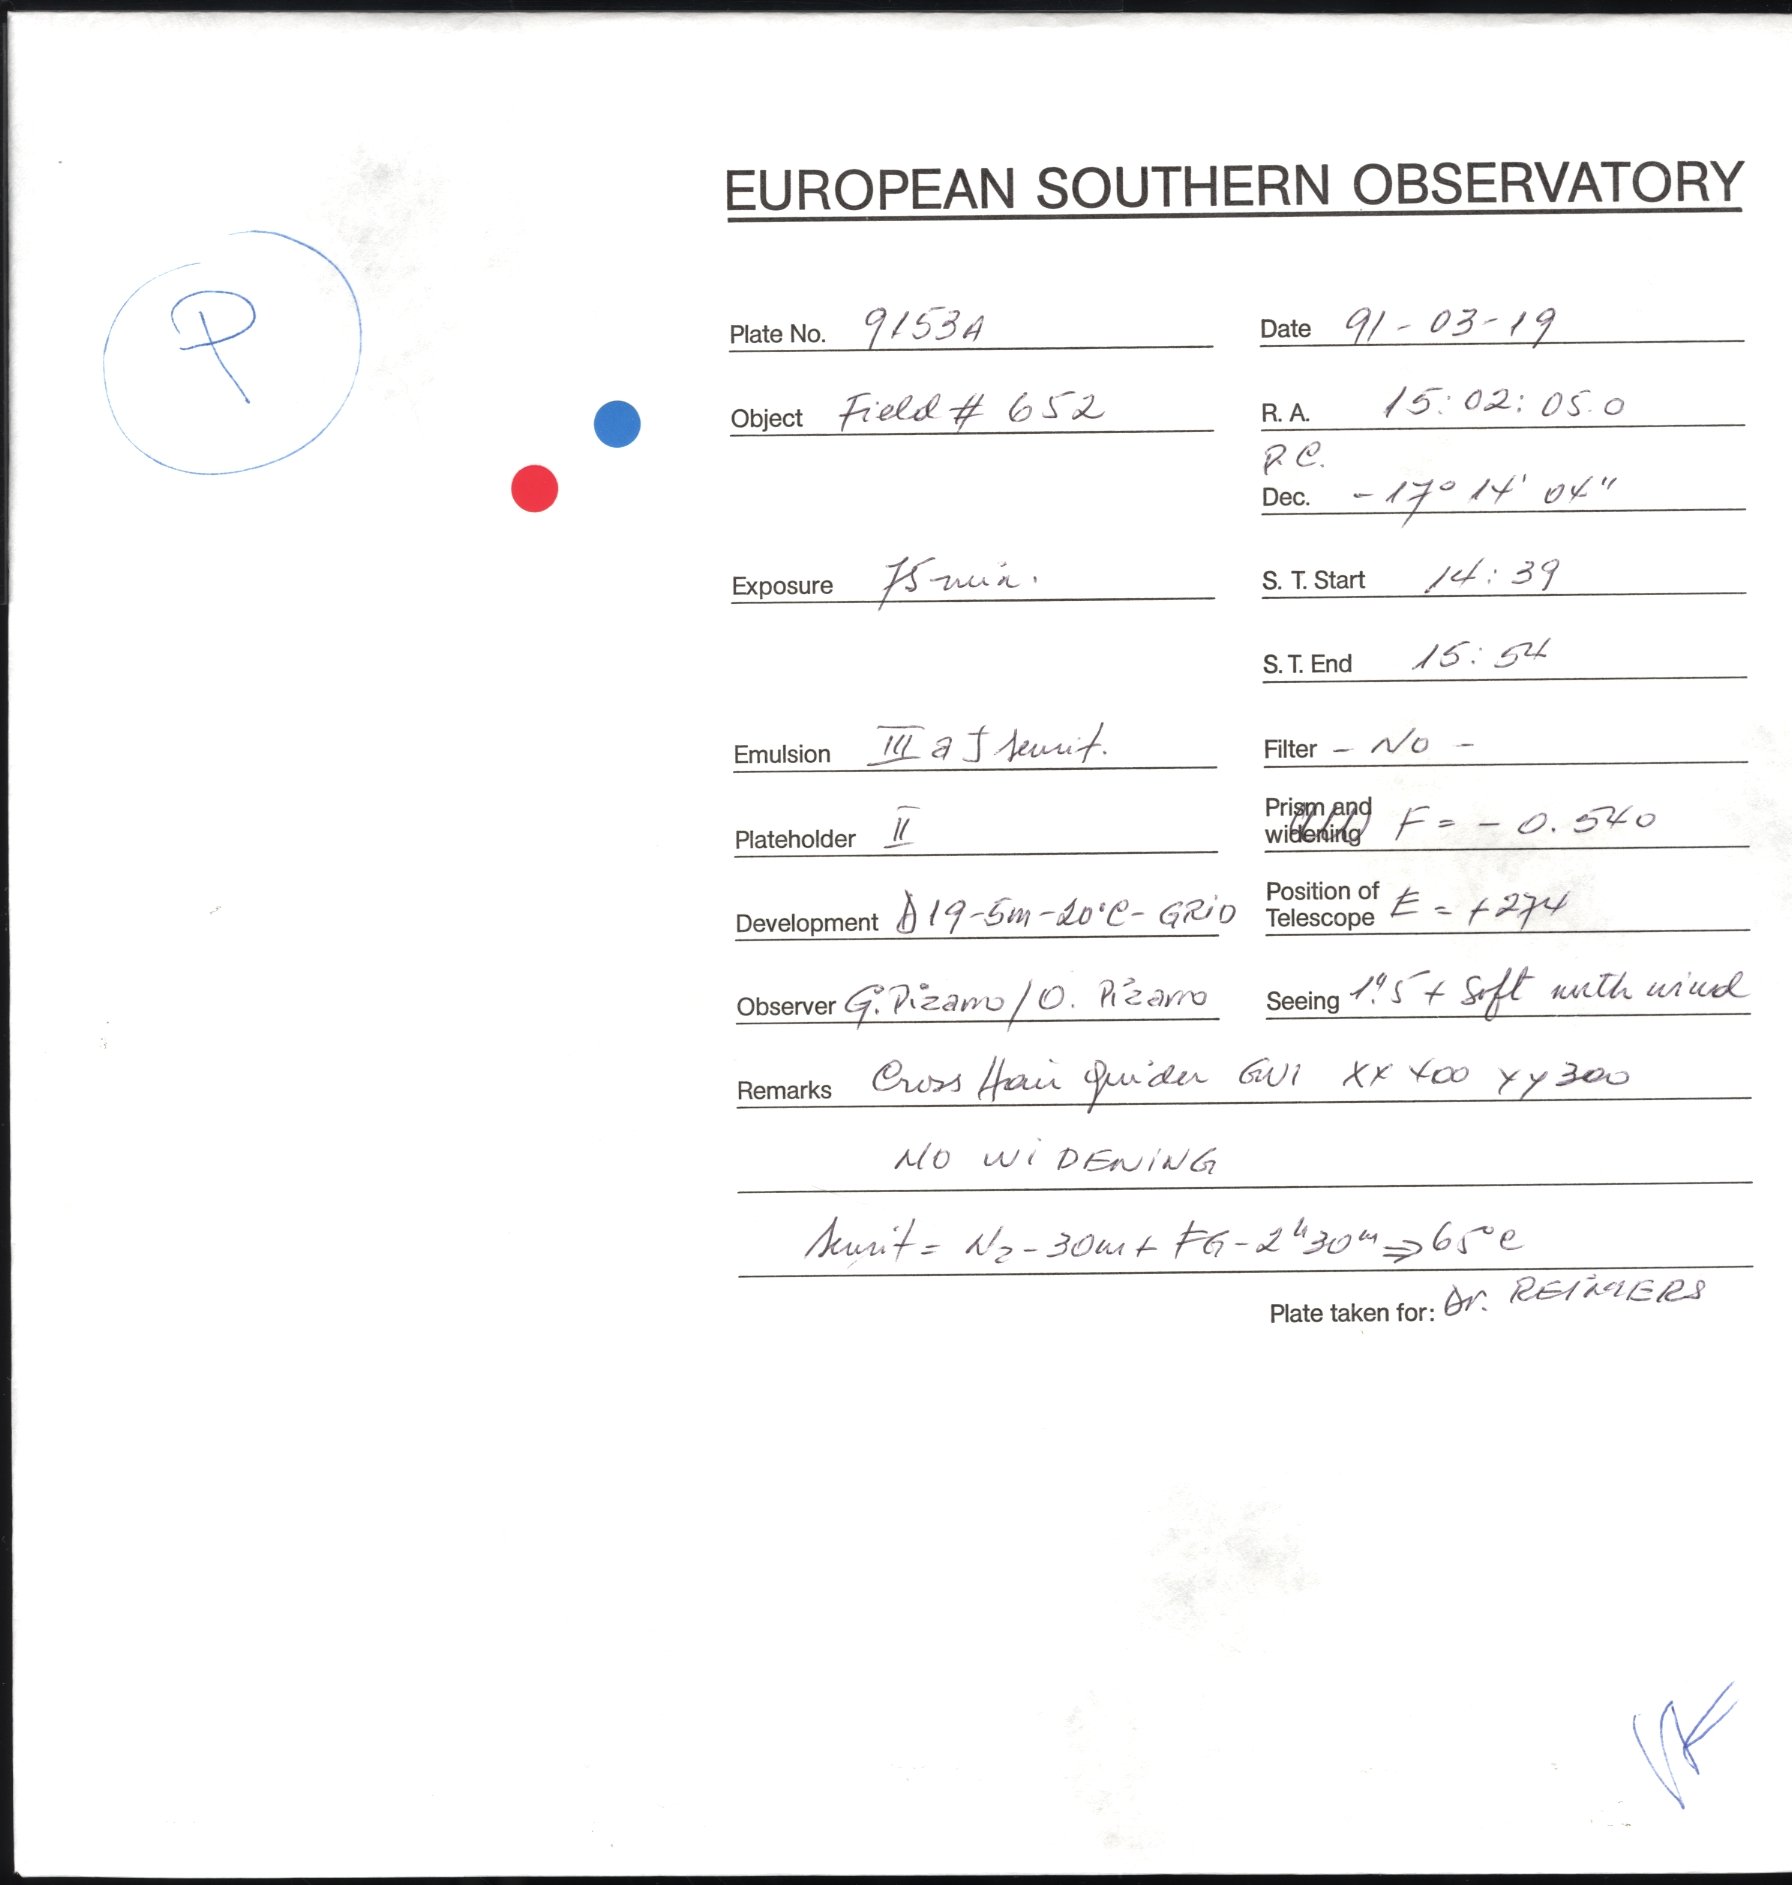 EUROPEAN SOUTHERN OBSERVATORY
P
Plate No. 9153A Date 91-03-19
Object Field # 652 R. A. 15:02:05.0
P.C.
Dec. -17° 14' 04"
Exposure 75 min. S. T. Start 14:39
S. T. End 15:54
Emulsion III a J sensit. Filter - No -
Plateholder II Prism and widening F = - 0.540
Development D19-5m-20°C- GRiO Position of Telescope E = +274
Observer G. Pizarro / O. Pizarro Seeing 1".5 + Soft with wind
Remarks Cross Hair guider GW1 XX 400 YY 300
NO WiDENiNG
Sensit = N2 - 30m + FG - 2h30m => 65°C
Plate taken for: Dr. REiMERS